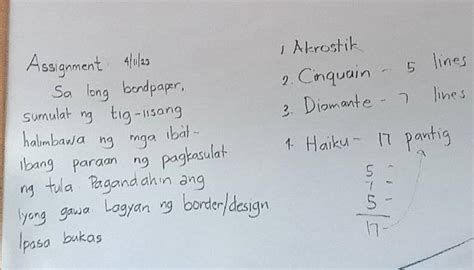 Assignment 4/11/23
Sa long bondpaper,
sumulat ng tig-iisang
halimbawa ng mga ibat-
ibang paraan ng pagkasulat
ng tula. Pagandahin ang
Iyong gawa Lagyan ng border/design
Ipasa bukas
1 Akrostik
2. Cinquain - 5 lines
3. Diamante - 7 lines
4. Haiku - 17 pantig
5 -
7 -
5 -
17 -